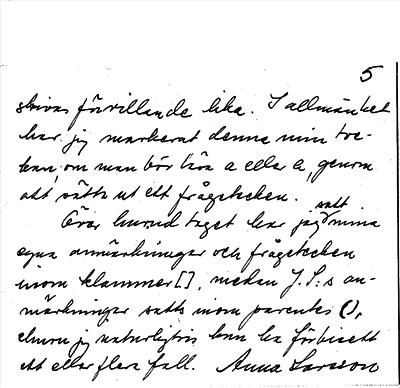 5
skrivas förvillande lika. I allmänhet
har jag markerat denna min tve-
kan, om man bör läsa a eller e, genom
att sätta ut ett frågetecken.
Över huvud taget har jag satt mina
egna anmärkningar och frågetecken
inom klammer [], medan J. S:s an-
märkningar satts inom parentes (),
ehuru jag naturligtvis kan ha förbisett
ett eller flera fall. Anna Larsson